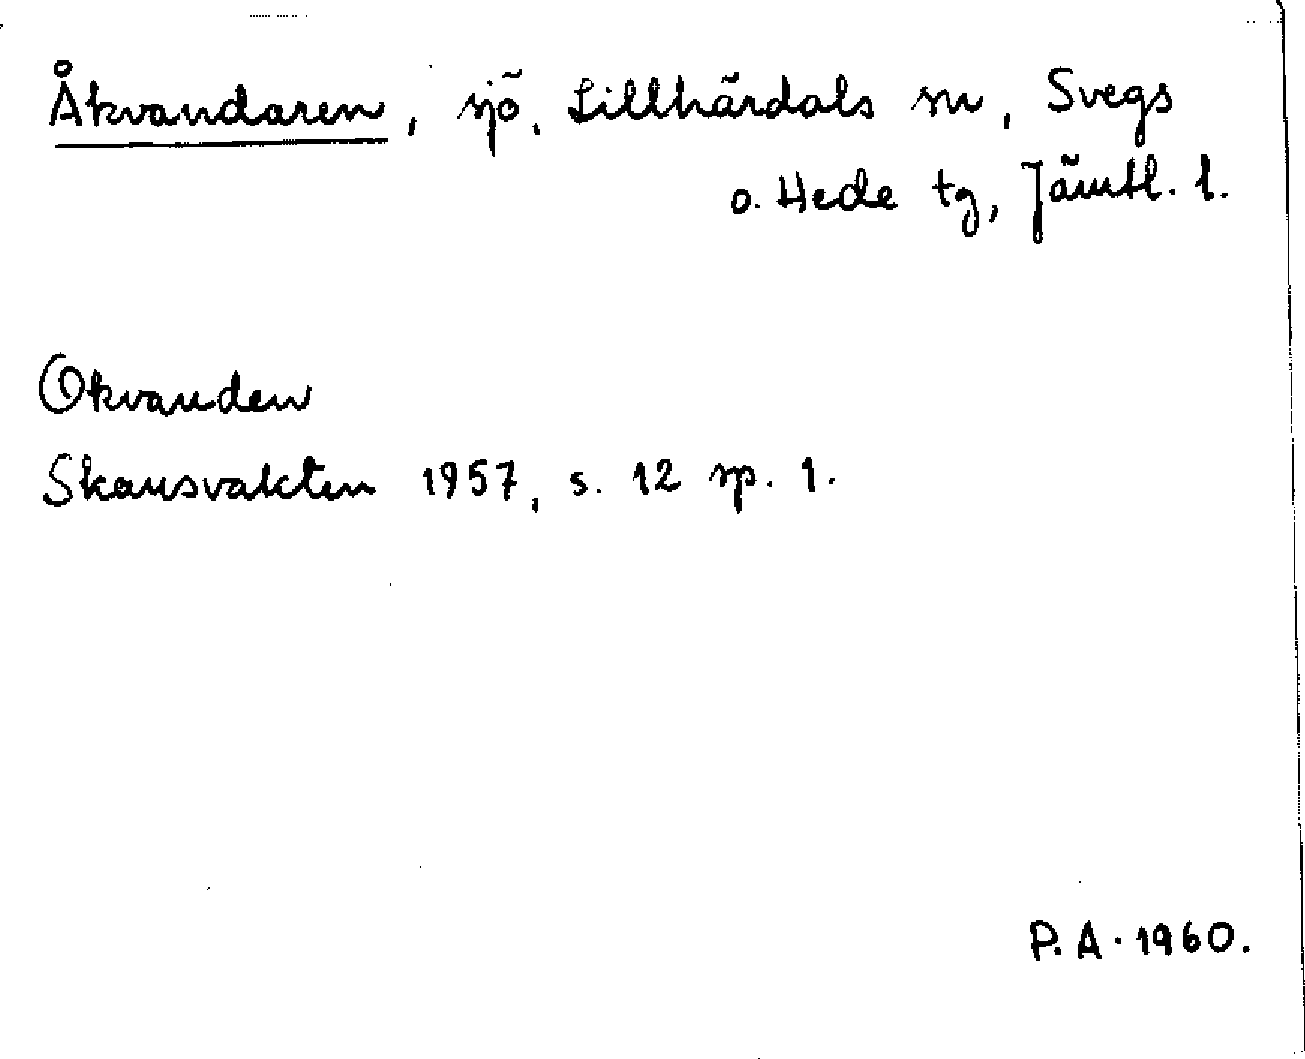 Åkvandaren, sjö, Lillhärdals sn, Svegs
o. Hede tg, Jämtl. l.
Okvanden
Skansvakten 1957, s. 12 sp. 1.
P. A. 1960.